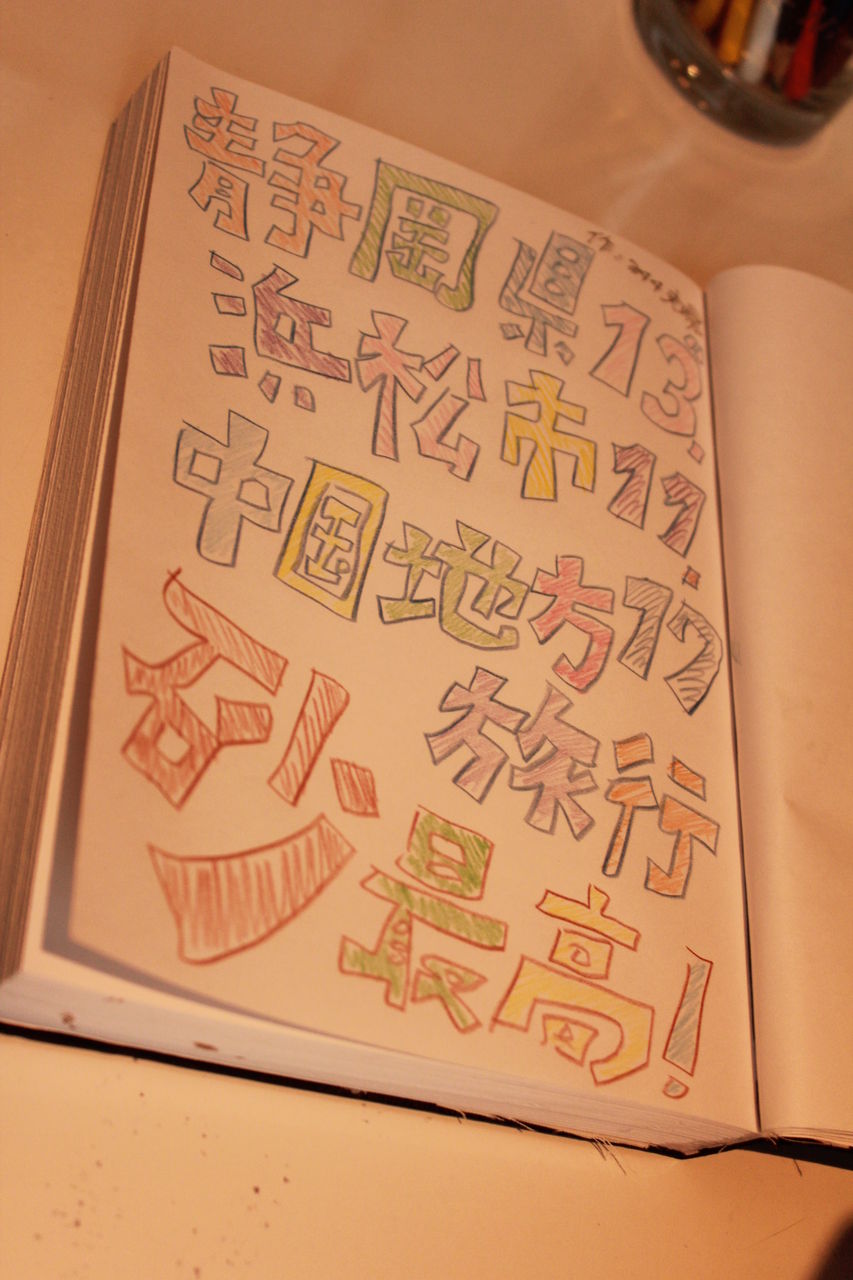 作:
静岡県 13.
浜松市 11.
中国地方 17
旅行
最高!